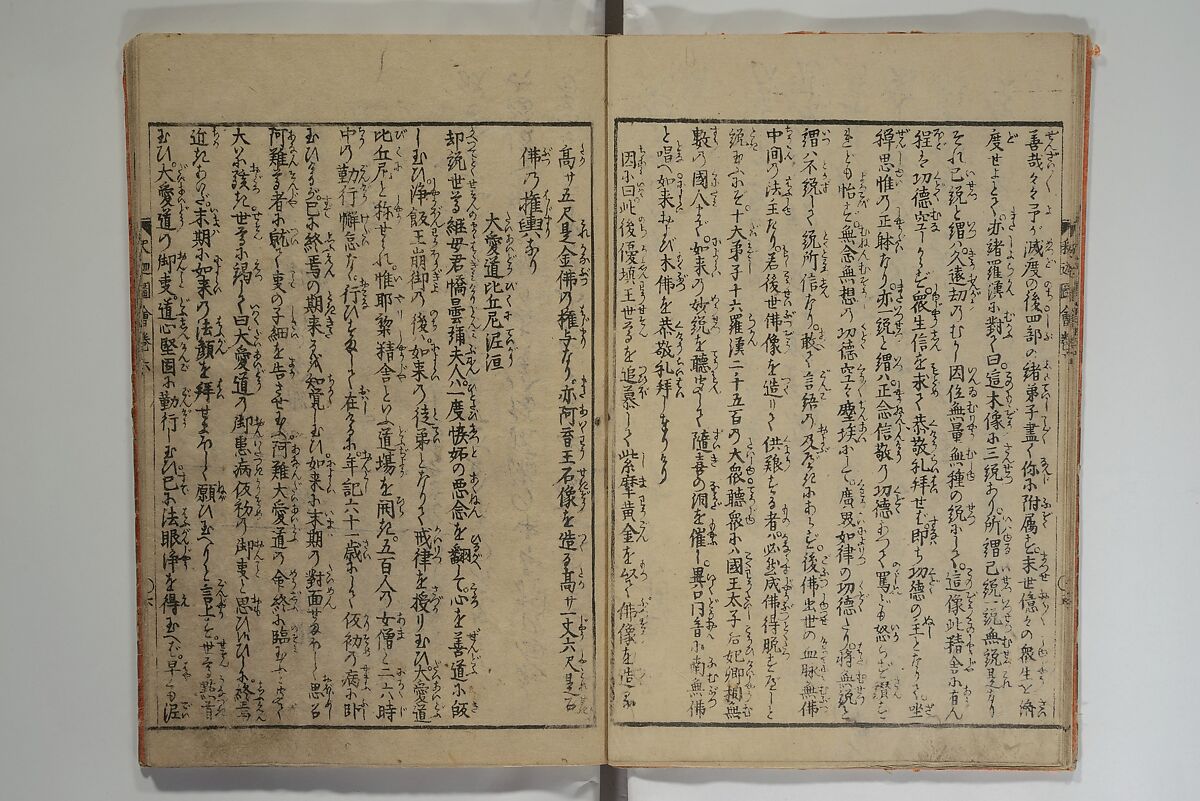 善哉々々予が滅度の後四部の諸弟子盡く你に附属す末世億々の衆生を済
度せよとぞ亦諸羅漢に對して曰這木像に三説あり所謂已説一説無説是なり
それ已説と謂ハ久遠劫のむかし因位無量無種の説にして這像此精舎に有ん
程ハ功德空しからず衆生信を求て恭敬礼拜せば即ち功德の主となりて坐
禅思惟の正躰なり亦一説と謂ハ正念信敬の功德によつて罵とも怒らず讃す
れども怡ばず無念無想の功德空く塵埃にして廣畧如律の功德たり将無説と
謂ハ不説して説所信なり敢て言語の及ぶ所にあらず後佛出世の血脉無佛
中間の法主なり若後世佛像を造りて供養する者ハ必然成佛得脱すべしと
説玉ふにぞ十大弟子十六羅漢二千五百の大衆聴衆ハ國王太子后妃卿相無
數の國人まで如来の妙説を聽聞して隨喜の涙を催し異口同音に南無佛
と唱如来および木佛を恭敬礼拜しけり
因に曰此後優塡王世尊を追慕して紫摩黄金を以て佛像を造る
高サ五尺是金佛の権与なり亦阿育王石像を造る高サ一丈六尺是石
佛の権輿なり
大愛道比丘尼泥洹
却説世尊の継母君憍曇弥夫人ハ一度嫉妬の悪念を翻して心を善道に皈
し玉ひ浄飯王崩御の後ハ如来の徒弟となりて戒律を授り玉ひ大愛道
比丘尼と称せられ惟耶黎精舎といへる道場を開き五百人の女僧と二六時
中の勤行懈怠なく行ひすまして在けるに年記六十一歳にして仮初の病に卧
玉ひけるが已に終焉の期来るを知覚し玉ひ如来に末期の對面せまほしく思召
阿難尊者に就て吏の子細を告させ玉へバ阿難大愛道の命終に臨玉ふと聞て
大に駭き世尊に謁して曰大愛道の御患病仮初の御吏と思ひしに終焉
近きにあれバ末期に如来の法顔を拜せまほしく願ひ玉へりと言上す世尊點首
玉ひ大愛道の御吏ハ道心堅固に勤行し玉ひ已に法眼浄を得玉へバ早くも泥
釈迦圖會巻六